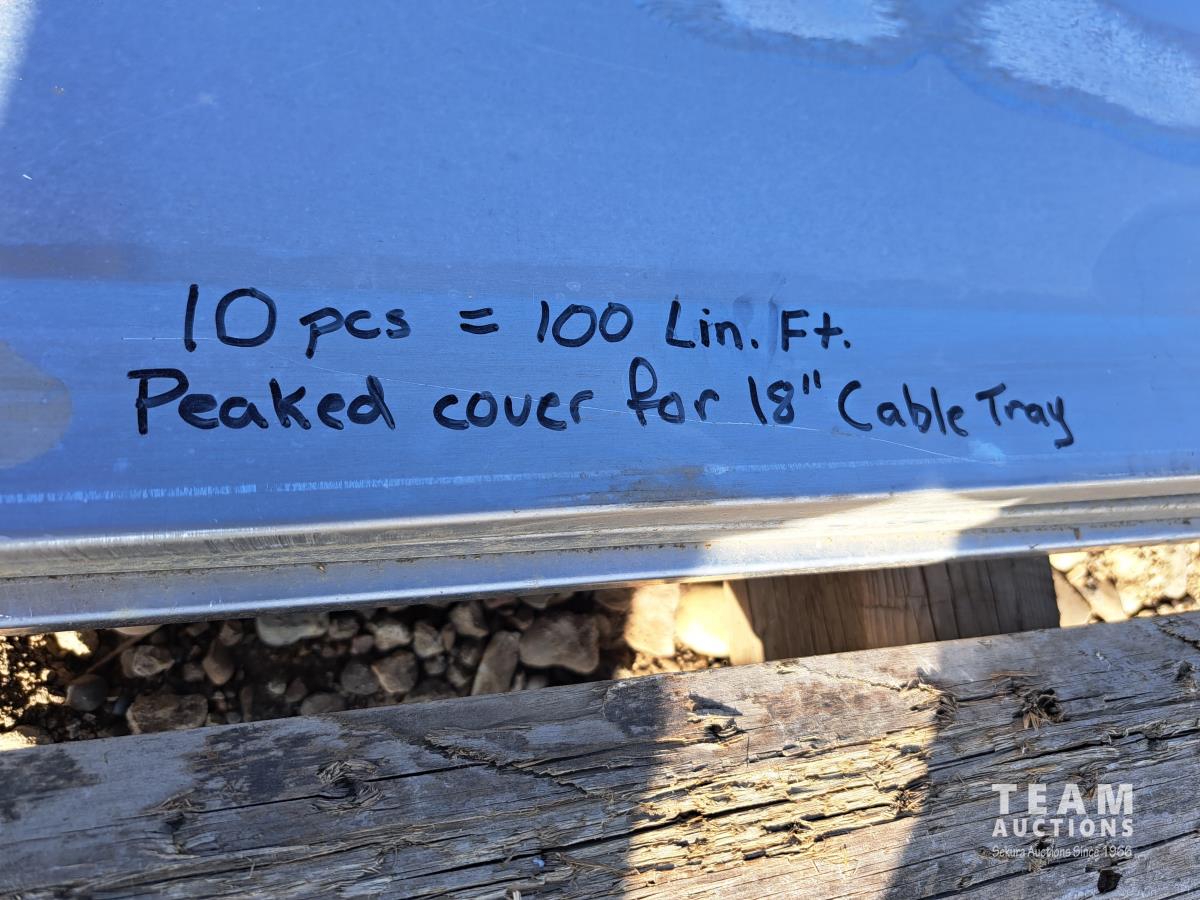 10 pcs = 100 Lin. Ft.
Peaked cover for 18" Cable Tray
TEAM
AUCTIONS
Sekura Auctions Since 1966